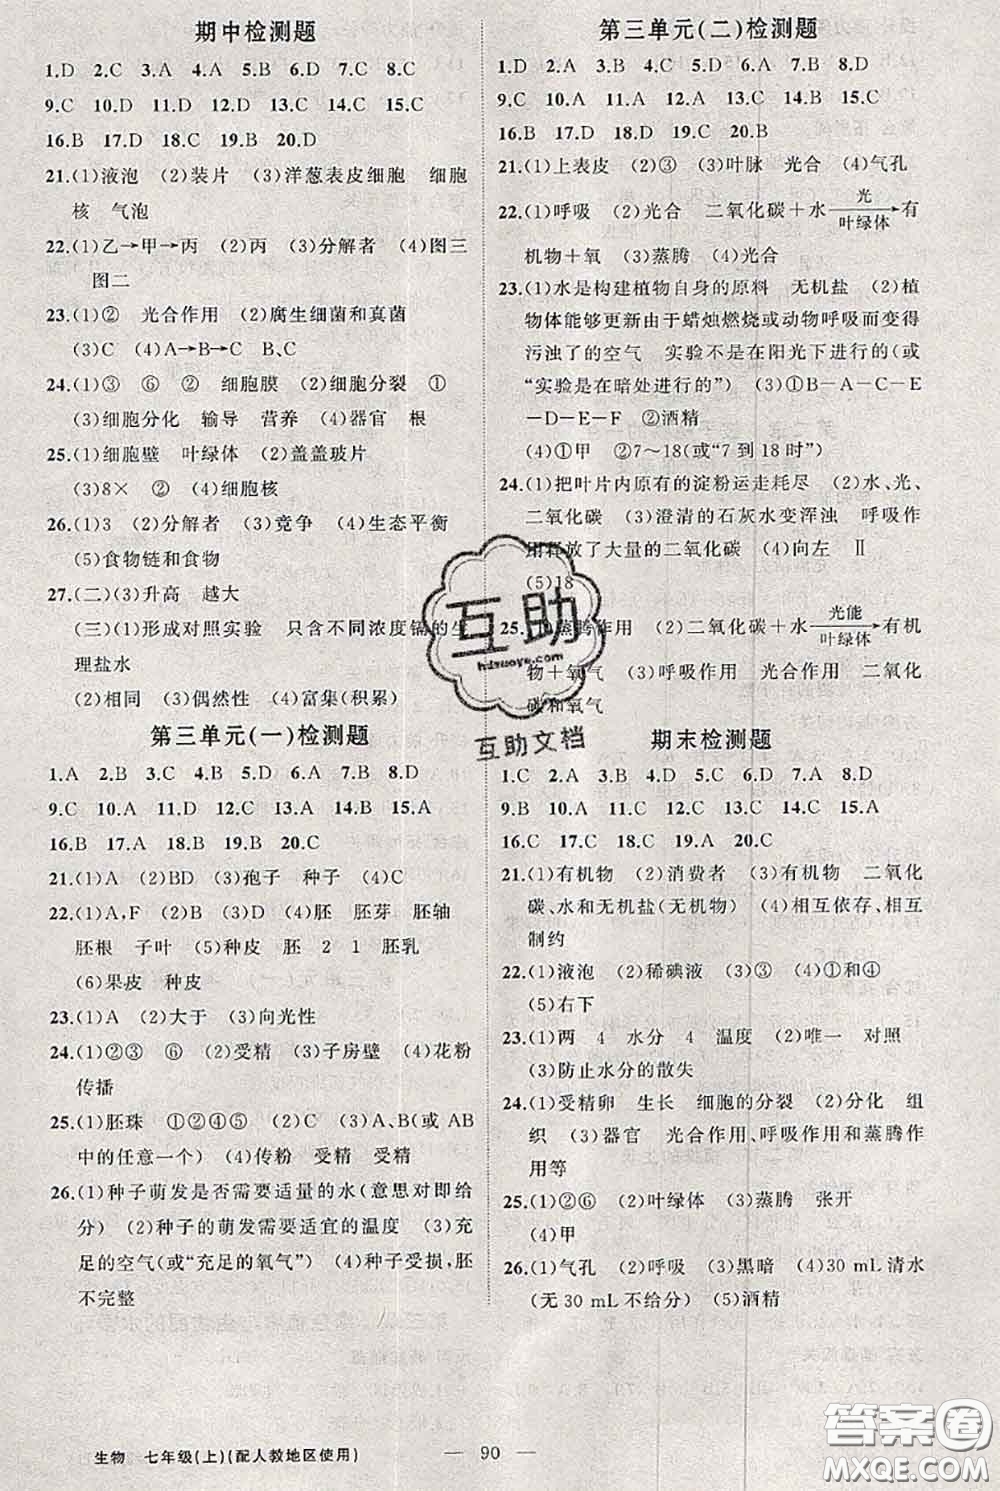 期中检测题
1.D 2.C 3.A 4.A 5.B 6.D 7.C 8.C
9.C 10.D 11.D 12.D 13.C 14.C 15.C
16.B 17.D 18.C 19.B 20.D
21.(1)液泡 (2)装片 (3)洋葱表皮细胞 细胞
核 气泡
22.(1)乙→甲→丙 (2)丙 (3)分解者 (4)图三
图二
23.(1)② 光合作用 (2)腐生细菌和真菌
(3)C (4)A→B→C B、C
24.(1)③ ⑥ ② 细胞膜 (2)细胞分裂 ①
(3)细胞分化 输导 营养 (4)器官 根
25.(1)细胞壁 叶绿体 (2)盖盖玻片
(3)8× ② (4)细胞核
26.(1)3 (2)分解者 (3)竞争 (4)生态平衡
(5)食物链和食物
27.(二)(3)升高 越大
(三)(1)形成对照实验 只含不同浓度镉的生
理盐水
(2)相同 (3)偶然性 (4)富集(积累)
第三单元(一)检测题
1.A 2.B 3.C 4.B 5.D 6.A 7.B 8.D
9.C 10.A 11.D 12.D 13.C 14.B 15.A
16.B 17.A 18.B 19.B 20.C
21.(1)A (2)BD (3)孢子 种子 (4)C
22.(1)A,F (2)B (3)D (4)胚 胚芽 胚轴
胚根 子叶 (5)种皮 胚 2 1 胚乳
(6)果皮 种皮
23.(1)A (2)大于 (3)向光性
24.(1)②③ ⑥ (2)受精 (3)子房壁 (4)花粉
传播
25.(1)胚珠 ①②④⑤ (2)C (3)A、B(或 AB
中的任意一个) (4)传粉 受精 受精
26.(1)种子萌发是否需要适量的水(意思对即给
分) (2)种子的萌发需要适宜的温度 (3)充
足的空气(或“充足的氧气”) (4)种子受损,胚
不完整
第三单元(二)检测题
1.D 2.A 3.B 4.D 5.D 6.A 7.B 8.D
9.C 10.A 11.D 12.C 13.C 14.B 15.C
16.B 17.D 18.C 19.C 20.B
21.(1)上表皮 (2)③ (3)叶脉 光合 (4)气孔
22.(1)呼吸 (2)光合 二氧化碳+水 光/叶绿体→有
机物+氧 (3)蒸腾 (4)光合
23.(1)水是构建植物自身的原料 无机盐 (2)植
物体能够更新由于蜡烛燃烧或动物呼吸而变得
污浊了的空气 实验不是在阳光下进行的(或
“实验是在暗处进行的”) (3)①B-A-C-E
-D-E-F ②酒精
(4)①甲 ②7～18(或“7 到 18 时”)
24.(1)把叶片内原有的淀粉运走耗尽 (2)水、光、
二氧化碳 (3)澄清的石灰水变浑浊 呼吸作
用释放了大量的二氧化碳 (4)向左 Ⅱ
(5)18
25.(1)蒸腾作用 (2)二氧化碳+水 光能/叶绿体→有机
物+氧气 (3)呼吸作用 光合作用 二氧化
碳和氧气
期末检测题
1.C 2.A 3.B 4.B 5.D 6.D 7.A 8.D
9.B 10.A 11.D 12.C 13.C 14.C 15.A
16.C 17.C 18.C 19.A 20.C
21.(1)有机物 (2)消费者 (3)有机物 二氧化
碳、水和无机盐(无机物) (4)相互依存、相互
制约
22.(1)液泡 (2)稀碘液 (3)③ (4)①和④
(5)右下
23.(1)两 4 水分 4 温度 (2)唯一 对照
(3)防止水分的散失
24.(1)受精卵 生长 细胞的分裂 (2)分化 组
织 (3)器官 光合作用、呼吸作用和蒸腾作
用等
25.(1)②⑥ (2)叶绿体 (3)蒸腾 张开
(4)甲
26.(1)气孔 (2)呼吸 (3)黑暗 (4)30 mL清水
(无 30 mL不给分) (5)酒精
互助
hdzuoye.com
互助文档
生物 七年级(上)(配人教地区使用)
— 90 —
答案圈
MXQE.COM